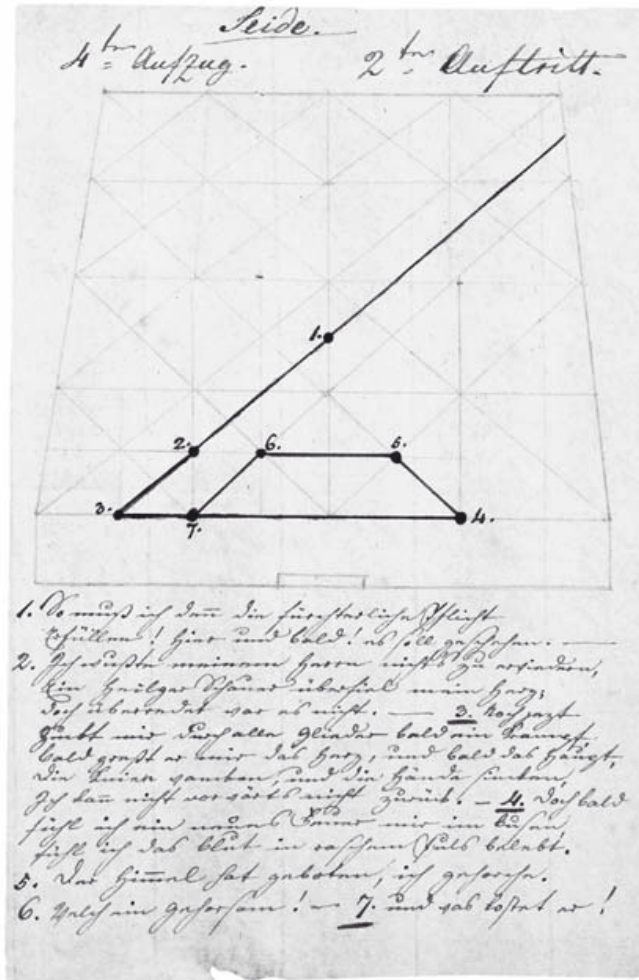 Seide.
4ter Aufzug. 2ter Auftritt.
1.
2.
6.
5.
3.
7.
4.
1. So muß ich denn die fürchterliche Pflicht
Erfüllen! Hier und bald! es soll geschehen. —
2. Ich wußte meinem Herrn nichts zu erwiedern,
Ein heilger Schauer überfiel mein Herz;
doch überredet war es nicht. — 3. Noch jezt
Zuckt mir durch alle Glieder bald ein Krampf,
bald preßt er mir das Herz, und bald das Haupt,
Die Knien wanken, und die Hände sinken,
Ich kann nicht vorwärts nicht zurück. — 4. Doch bald
fühl ich ein neues Feuer mir im Busen,
fühl ich das Blut in raschem Puls belebt.
5. Der Himmel hat geboten, ich gehorche.
6. Welch ein Gehorsam! — 7. und was kostet er!